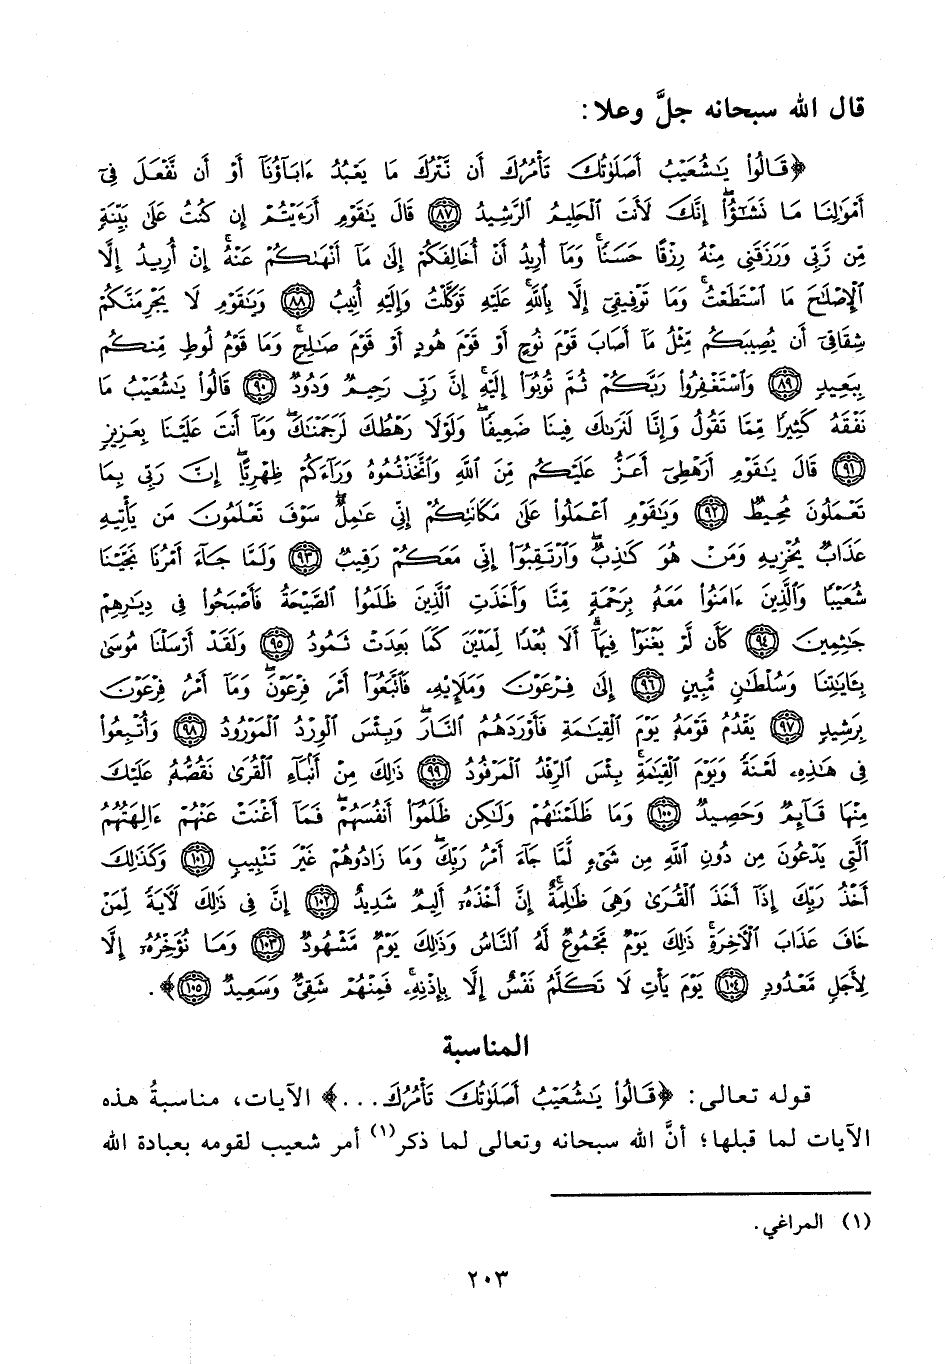 قال الله سبحانه جلَّ وعلا:
﴿قَالُوا۟ يَـٰشُعَيْبُ أَصَلَوٰتُكَ تَأْمُرُكَ أَن نَّتْرُكَ مَا يَعْبُدُ ءَابَآؤُنَآ أَوْ أَن نَّفْعَلَ فِىٓ
أَمْوَٰلِنَا مَا نَشَـٰٓؤُا۟ ۖ إِنَّكَ لَأَنتَ ٱلْحَلِيمُ ٱلرَّشِيدُ ﴿٨٧﴾ قَالَ يَـٰقَوْمِ أَرَءَيْتُمْ إِن كُنتُ عَلَىٰ بَيِّنَةٍ
مِّن رَّبِّى وَرَزَقَنِى مِنْهُ رِزْقًا حَسَنًا ۚ وَمَآ أُرِيدُ أَنْ أُخَالِفَكُمْ إِلَىٰ مَآ أَنْهَىٰكُمْ عَنْهُ ۚ إِنْ أُرِيدُ إِلَّا
ٱلْإِصْلَـٰحَ مَا ٱسْتَطَعْتُ ۚ وَمَا تَوْفِيقِىٓ إِلَّا بِٱللَّهِ ۚ عَلَيْهِ تَوَكَّلْتُ وَإِلَيْهِ أُنِيبُ ﴿٨٨﴾ وَيَـٰقَوْمِ لَا يَجْرِمَنَّكُمْ
شِقَاقِىٓ أَن يُصِيبَكُم مِّثْلُ مَآ أَصَابَ قَوْمَ نُوحٍ أَوْ قَوْمَ هُودٍ أَوْ قَوْمَ صَـٰلِحٍ ۚ وَمَا قَوْمُ لُوطٍ مِّنكُم
بِبَعِيدٍ ﴿٨٩﴾ وَٱسْتَغْفِرُوا۟ رَبَّكُمْ ثُمَّ تُوبُوٓا۟ إِلَيْهِ ۚ إِنَّ رَبِّى رَحِيمٌ وَدُودٌ ﴿٩٠﴾ قَالُوا۟ يَـٰشُعَيْبُ مَا
نَفْقَهُ كَثِيرًا مِّمَّا تَقُولُ وَإِنَّا لَنَرَىٰكَ فِينَا ضَعِيفًا ۖ وَلَوْلَا رَهْطُكَ لَرَجَمْنَـٰكَ ۖ وَمَآ أَنتَ عَلَيْنَا بِعَزِيزٍ
﴿٩١﴾ قَالَ يَـٰقَوْمِ أَرَهْطِىٓ أَعَزُّ عَلَيْكُم مِّنَ ٱللَّهِ وَٱتَّخَذْتُمُوهُ وَرَآءَكُمْ ظِهْرِيًّا ۖ إِنَّ رَبِّى بِمَا
تَعْمَلُونَ مُحِيطٌ ﴿٩٢﴾ وَيَـٰقَوْمِ ٱعْمَلُوا۟ عَلَىٰ مَكَانَتِكُمْ إِنِّى عَـٰمِلٌ ۖ سَوْفَ تَعْلَمُونَ مَن يَأْتِيهِ
عَذَابٌ يُخْزِيهِ وَمَنْ هُوَ كَـٰذِبٌ ۖ وَٱرْتَقِبُوٓا۟ إِنِّى مَعَكُمْ رَقِيبٌ ﴿٩٣﴾ وَلَمَّا جَآءَ أَمْرُنَا نَجَّيْنَا
شُعَيْبًا وَٱلَّذِينَ ءَامَنُوا۟ مَعَهُۥ بِرَحْمَةٍ مِّنَّا وَأَخَذَتِ ٱلَّذِينَ ظَلَمُوا۟ ٱلصَّيْحَةُ فَأَصْبَحُوا۟ فِى دِيَـٰرِهِمْ
جَـٰثِمِينَ ﴿٩٤﴾ كَأَن لَّمْ يَغْنَوْا۟ فِيهَآ ۗ أَلَا بُعْدًا لِّمَدْيَنَ كَمَا بَعِدَتْ ثَمُودُ ﴿٩٥﴾ وَلَقَدْ أَرْسَلْنَا مُوسَىٰ
بِـَٔايَـٰتِنَا وَسُلْطَـٰنٍ مُّبِينٍ ﴿٩٦﴾ إِلَىٰ فِرْعَوْنَ وَمَلَإِي۟هِۦ فَٱتَّبَعُوٓا۟ أَمْرَ فِرْعَوْنَ ۖ وَمَآ أَمْرُ فِرْعَوْنَ
بِرَشِيدٍ ﴿٩٧﴾ يَقْدُمُ قَوْمَهُۥ يَوْمَ ٱلْقِيَـٰمَةِ فَأَوْرَدَهُمُ ٱلنَّارَ ۖ وَبِئْسَ ٱلْوِرْدُ ٱلْمَوْرُودُ ﴿٩٨﴾ وَأُتْبِعُوا۟
فِى هَـٰذِهِۦ لَعْنَةً وَيَوْمَ ٱلْقِيَـٰمَةِ ۚ بِئْسَ ٱلرِّفْدُ ٱلْمَرْفُودُ ﴿٩٩﴾ ذَٰلِكَ مِنْ أَنۢبَآءِ ٱلْقُرَىٰ نَقُصُّهُۥ عَلَيْكَ
مِنْهَا قَآئِمٌ وَحَصِيدٌ ﴿١٠٠﴾ وَمَا ظَلَمْنَـٰهُمْ وَلَـٰكِن ظَلَمُوٓا۟ أَنفُسَهُمْ ۖ فَمَآ أَغْنَتْ عَنْهُمْ ءَالِهَتُهُمُ
ٱلَّتِى يَدْعُونَ مِن دُونِ ٱللَّهِ مِن شَىْءٍ لَّمَّا جَآءَ أَمْرُ رَبِّكَ ۖ وَمَا زَادُوهُمْ غَيْرَ تَتْبِيبٍ ﴿١٠١﴾ وَكَذَٰلِكَ
أَخْذُ رَبِّكَ إِذَآ أَخَذَ ٱلْقُرَىٰ وَهِىَ ظَـٰلِمَةٌ ۚ إِنَّ أَخْذَهُۥٓ أَلِيمٌ شَدِيدٌ ﴿١٠٢﴾ إِنَّ فِى ذَٰلِكَ لَـَٔايَةً لِّمَنْ
خَافَ عَذَابَ ٱلْـَٔاخِرَةِ ۚ ذَٰلِكَ يَوْمٌ مَّجْمُوعٌ لَّهُ ٱلنَّاسُ وَذَٰلِكَ يَوْمٌ مَّشْهُودٌ ﴿١٠٣﴾ وَمَا نُؤَخِّرُهُۥٓ إِلَّا
لِأَجَلٍ مَّعْدُودٍ ﴿١٠٤﴾ يَوْمَ يَأْتِ لَا تَكَلَّمُ نَفْسٌ إِلَّا بِإِذْنِهِۦ ۚ فَمِنْهُمْ شَقِىٌّ وَسَعِيدٌ ﴿١٠٥﴾﴾.
المناسبة
قوله تعالى: ﴿قَالُوا۟ يَـٰشُعَيْبُ أَصَلَوٰتُكَ تَأْمُرُكَ...﴾ الآيات، مناسبةُ هذه
الآيات لما قبلها؛ أنَّ الله سبحانه وتعالى لما ذكر(١) أمر شعيب لقومه بعبادة الله
(١) المراغي.
٢٠٣